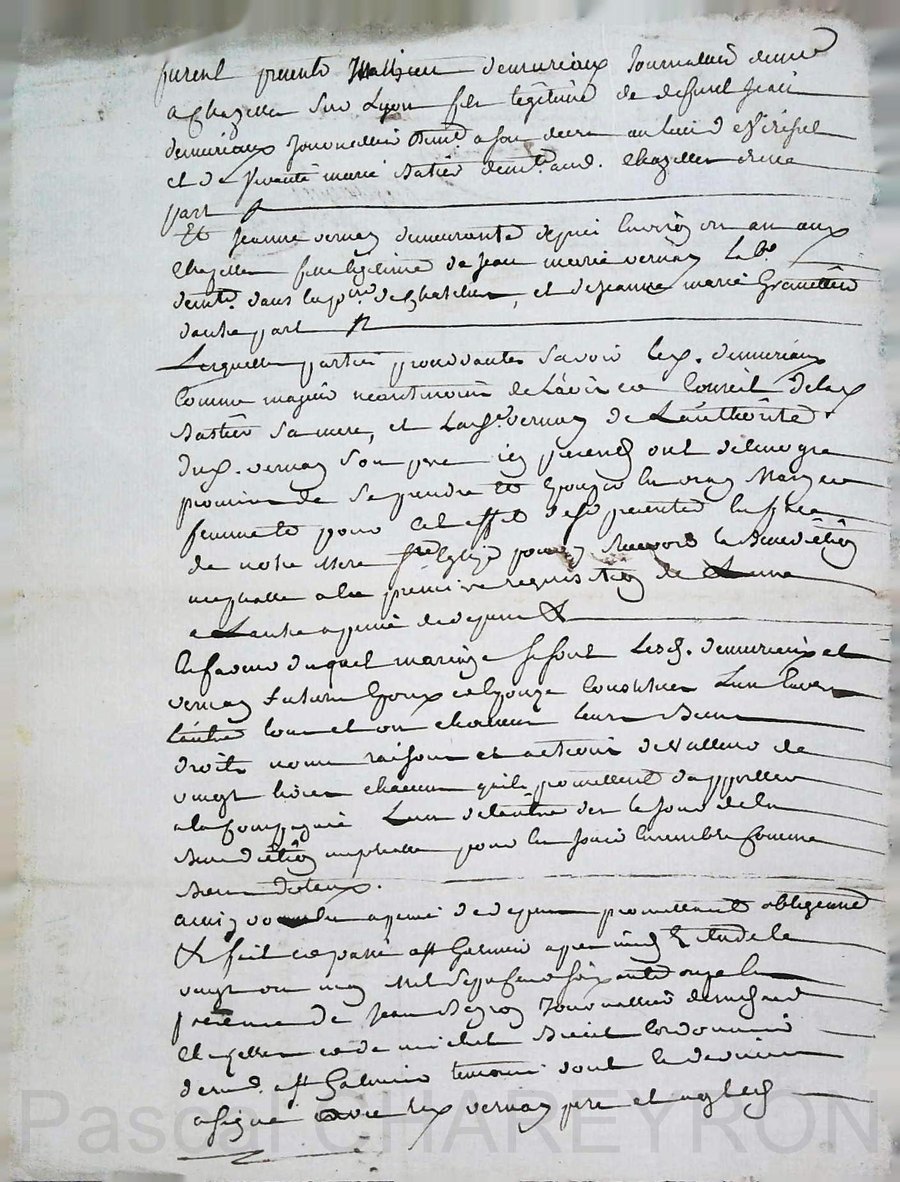 furent presents Mathieu demurieux Journallier demt
a Chazelles sur Lyon fils legitime de defunt Jean
demurieux Journallier demt. a son deces au lieu d
et de vivante marie Batier demte. aud. Chazelles d'une
part
Et Jeanne vernay demeurante depuis environ un an aux
Chazelles fille legitime de Jean marie vernay Labr
demt. dans la psse. de Chatelus, et de Jeanne marie
dautre part
Lesquelles parties procedantes savoir led. demurieux
comme majeur neantmoins de L'avis et Conseil de lad.
Batier sa mere, et lad. vernay de Lauthorité
dud. vernay son pere icy presents ont de leur gre
promis de se prendre et Epouser en vray Mariage
pour cet effet de se presenter en face
de notre Mere ste Eglise pour y Recevoir la Benediction
nuptialle a la premiere requisition de Lune
a Lautre a peine de depens &
En faveur duquel mariage se sont Lesd. demurieux et
vernay futurs Epoux et Epouze constitués Lun envers
Lautre tous et un chacun leurs Biens
droits noms raisons et actions de valleur de
vingt livres chacun quils promettent d'apporter
a la Compagnie Lun de lautre des le Jour de la
Benediction nuptialle pour en Jouir ensemble Comme
Biens dotaux.
ainsy voulu a peine de depens promettant obligeant
& fait et passé a st Galmier apres midy Etude le
vingt un may Mil sept cent soixante onze en
presence de Jean Journallier demt aud
Chazelles et de michel Cordonnier
demt. a st Galmier temoins dont le dernier
a signé avec led. vernay pere et
Pascal CHAREYRON